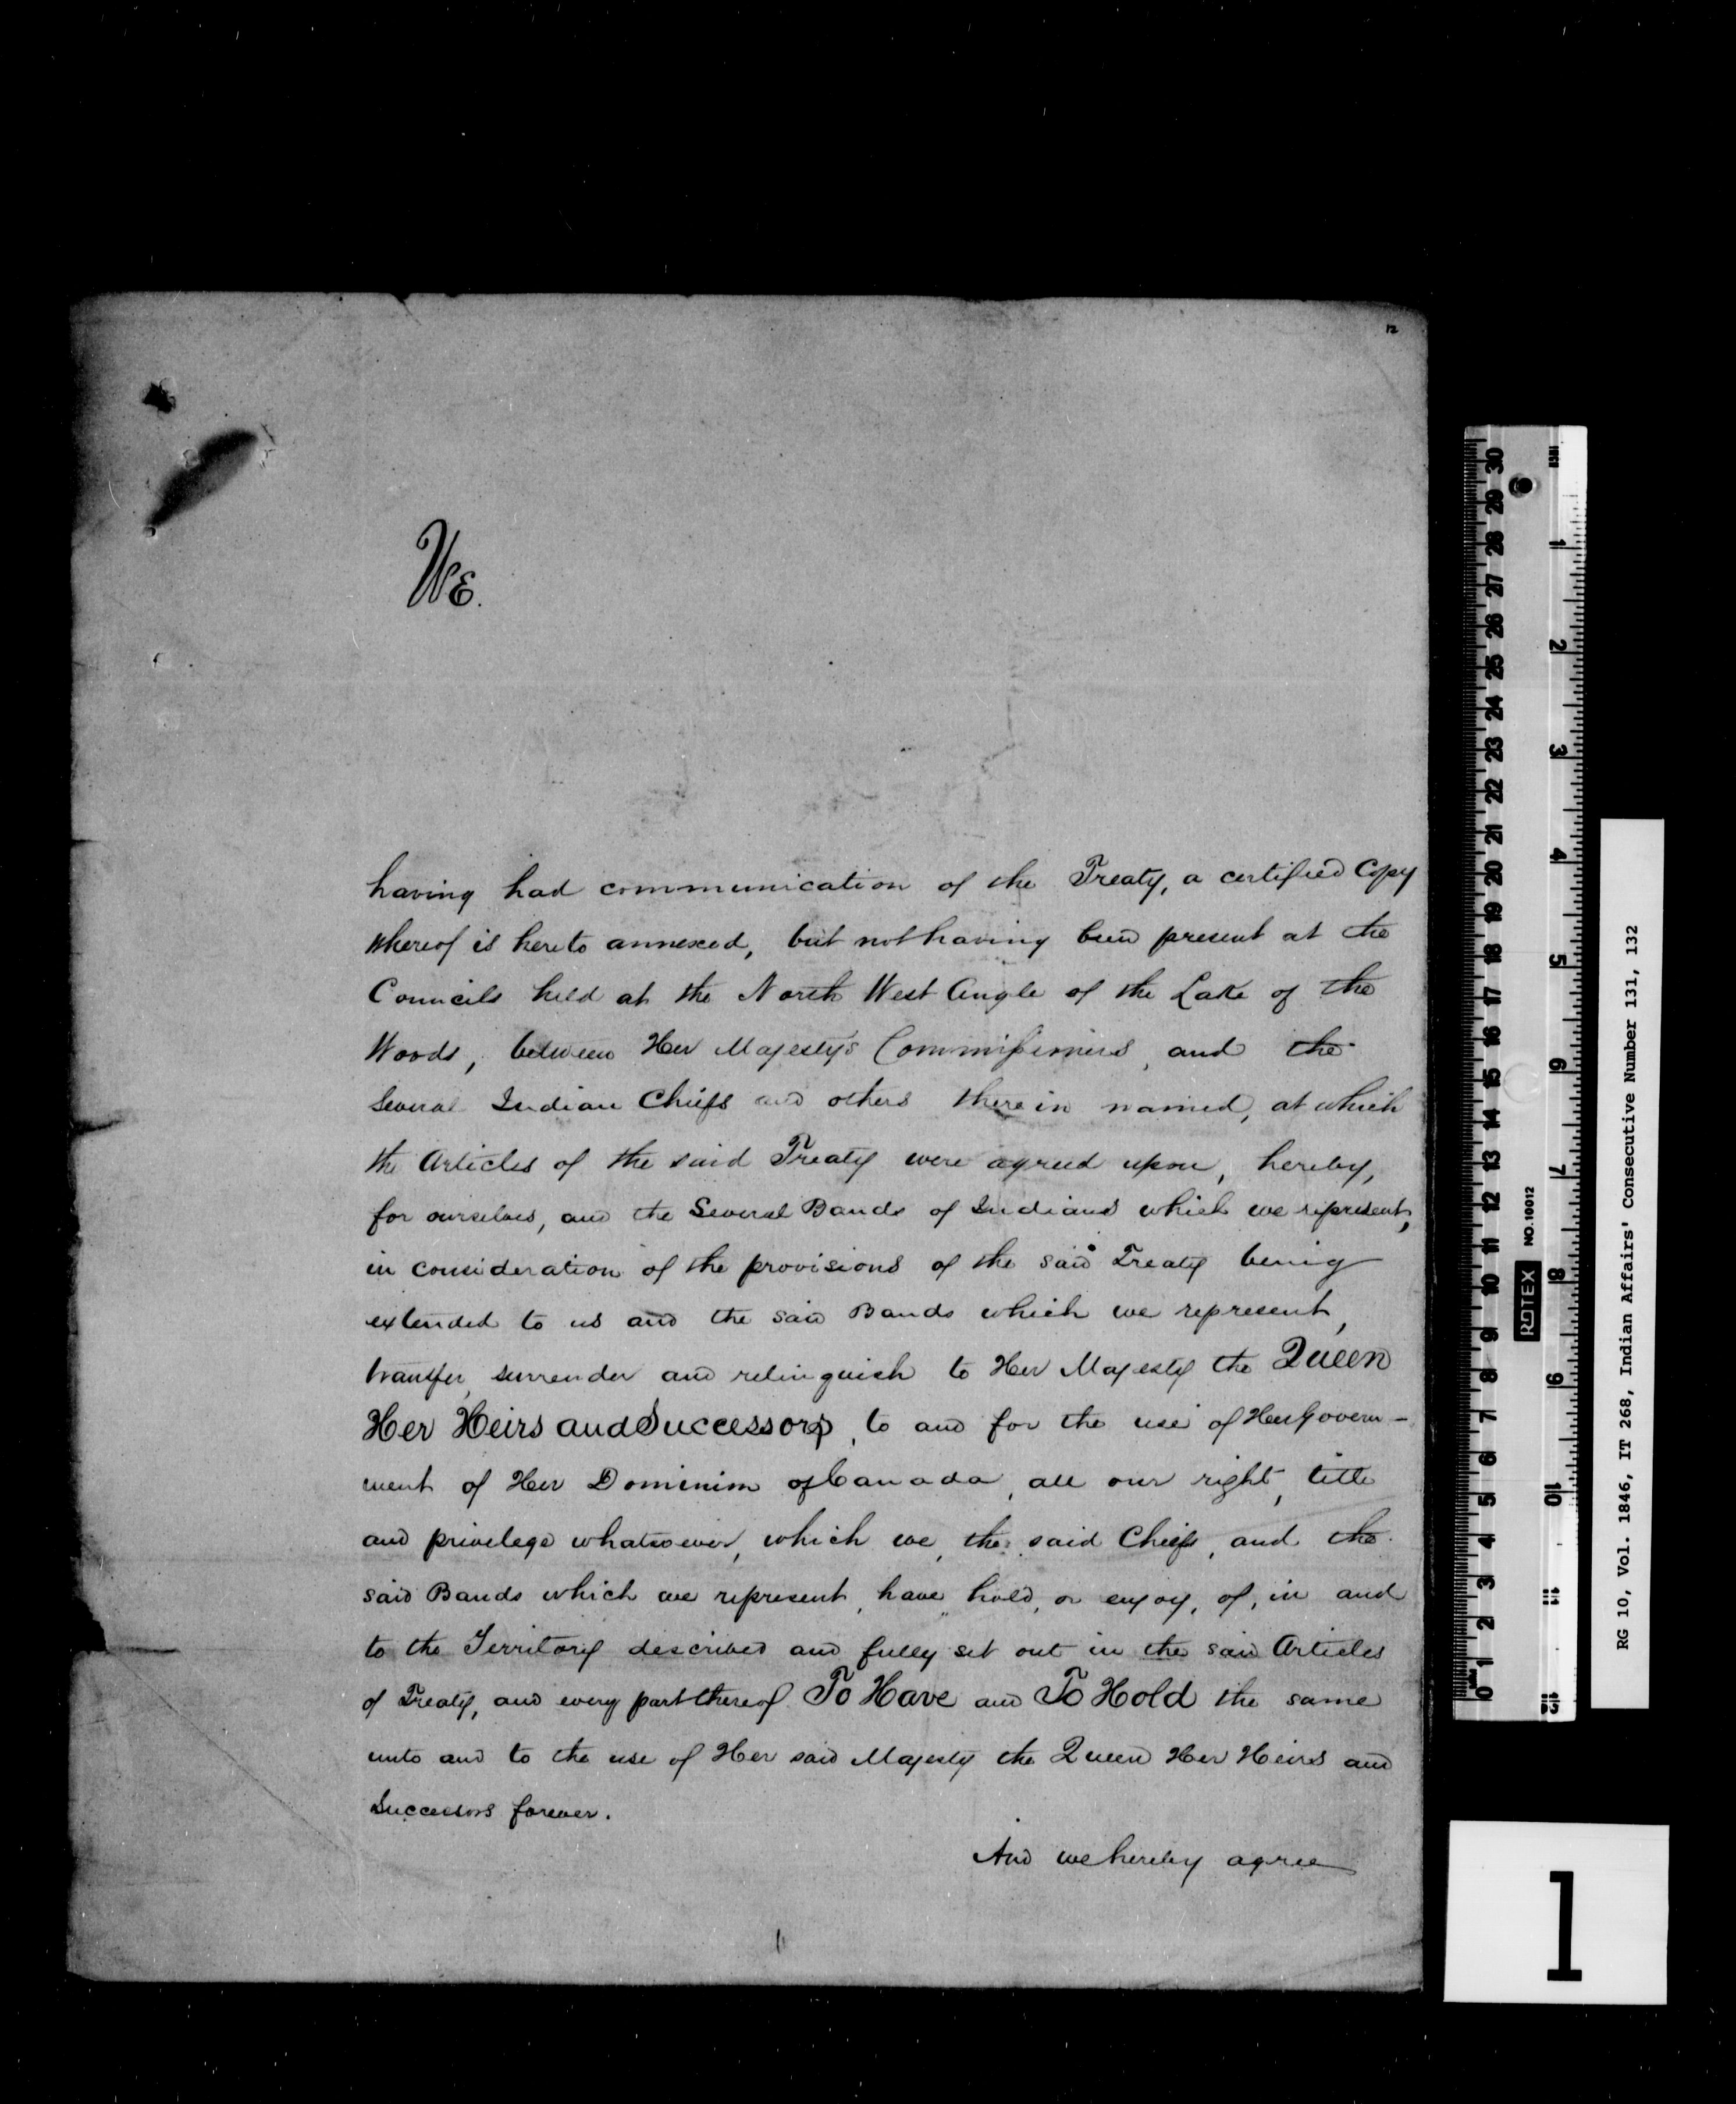 12
We.
having had communication of the Treaty, a certified Copy
whereof is hereto annexed, but not having been present at the
Councils held at the North West Angle of the Lake of the
Woods, between Her Majesty's Commissioners, and the
Several Indian Chiefs and others therein named, at which
the Articles of the said Treaty were agreed upon, hereby,
for ourselves, and the Several Bands of Indians which we represent,
in consideration of the provisions of the said Treaty being
extended to us and the said Bands which we represent,
transfer, surrender and relinquish to Her Majesty the Queen
Her Heirs and Successors, to and for the use of Her Govern-
ment of Her Dominion of Canada, all our right, title
and privilege whatsoever, which we, the said Chiefs, and the
said Bands which we represent, have, hold, or enjoy, of, in and
to the Territory described and fully set out in the said Articles
of Treaty, and every part thereof. To Have and To Hold the same
unto and to the use of Her said Majesty the Queen Her Heirs and
Successors forever.
And we hereby agree
30 29 28 27 26 25 24 23 22 21 20 19 18 17 16 15 14 13 12 11 10 9 8 7 6 5 4 3 2 1 0
1 2 3 4 5 6 7 8 9 10 11 12
ROTEX NO. 10012
RG 10, Vol. 1846, IT 268, Indian Affairs' Consecutive Number 131, 132
1